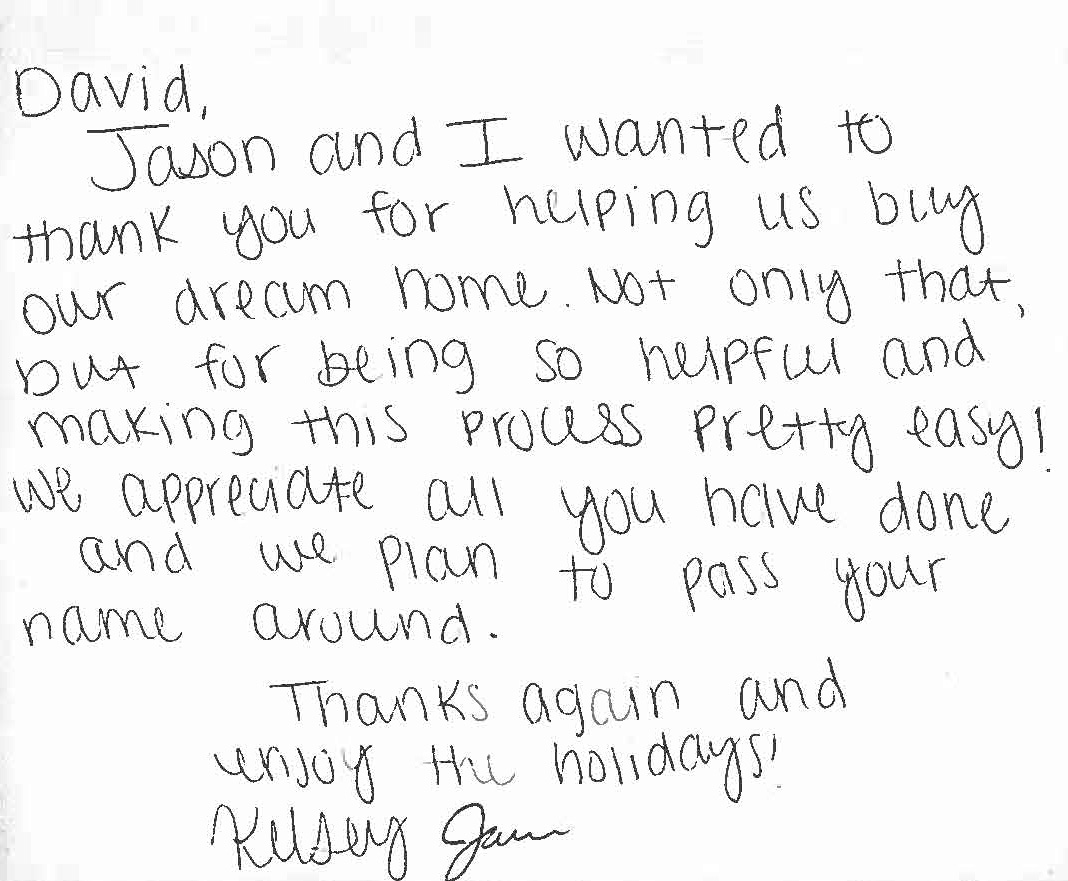 David,
Jason and I wanted to
thank you for helping us buy
our dream home. Not only that,
but for being so helpful and
making this process pretty easy!
We appreciate all you have done
and we plan to pass your
name around.
Thanks again and
enjoy the holidays!
Kelsey Jason